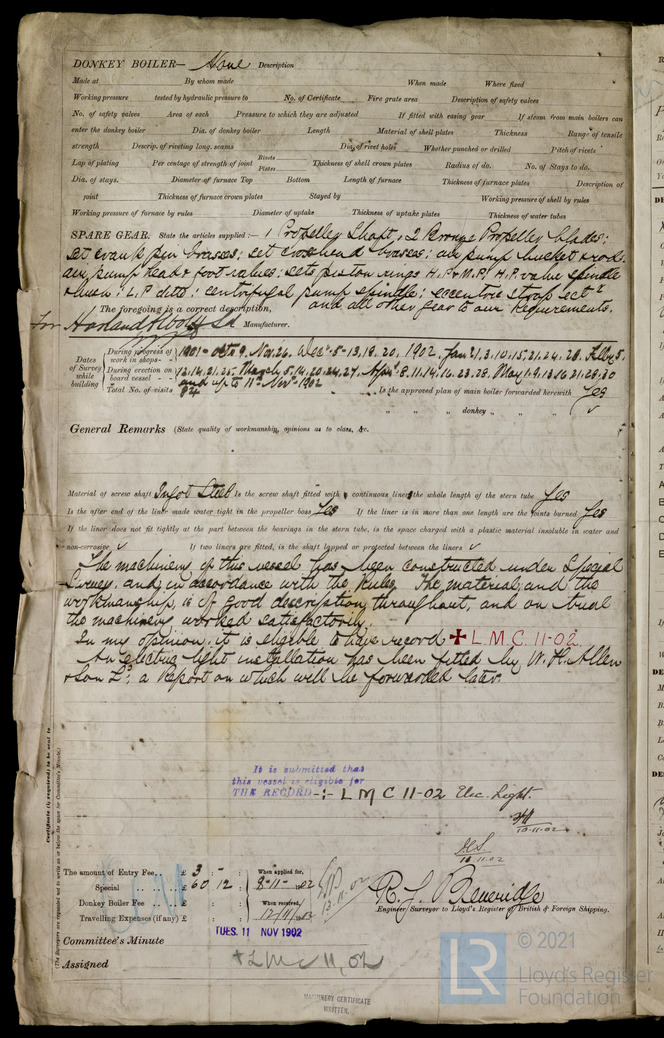 DONKEY BOILER— None Description
Made at By whom made When made Where fixed
Working pressure tested by hydraulic pressure to No. of Certificate Fire grate area Description of safety valves
No. of safety valves Area of each Pressure to which they are adjusted If fitted with easing gear If steam from main boilers can
enter the donkey boiler Dia. of donkey boiler Length Material of shell plates Thickness Range of tensile
strength Descrip. of riveting long. seams Dia. of rivet holes Whether punched or drilled Pitch of rivets
Lap of plating Per centage of strength of joint Rivets Plates Thickness of shell crown plates Radius of do. No. of Stays to do.
Dia. of stays. Diameter of furnace Top Bottom Length of furnace Thickness of furnace plates Description of
joint Thickness of furnace crown plates Stayed by Working pressure of shell by rules
Working pressure of furnace by rules Diameter of uptake Thickness of uptake plates Thickness of water tubes
SPARE GEAR. State the articles supplied:— 1 Propeller Shaft, 2 Bronze Propeller blades:
set crank pin brasses: set crosshead brasses: air pump bucket & rod.
air pump head & foot valves: sets piston rings H.P. & M.P. H.P. valve spindle
: L.P. ditto: centrifugal pump spindle: eccentric strap
The foregoing is a correct description, and all other gear to our requirements.
For Harland & Wolff Ld Manufacturer.
Dates of Survey while building
During progress of work in shops - - 1901 - Oct 9, Nov. 26, Dec. 5-13, 18, 20, 1902, Jan 21, 3, 10, 15, 21, 24, 28, Feby 5,
During erection on board vessel - - - 12, 14, 21, 25, March 5, 14, 20, 24, 27, April 8, 11, 14, 16, 23, 28, May 1, 9, 13, 16, 21, 28, 30
and up to 11th Nov. 1902
Total No. of visits 94 Is the approved plan of main boiler forwarded herewith Yes
" " " donkey " " "
General Remarks (State quality of workmanship, opinions as to class, &c.
Material of screw shaft Ingot Steel Is the screw shaft fitted with a continuous liner the whole length of the stern tube Yes
Is the after end of the liner made water tight in the propeller boss Yes If the liner is in more than one length are the joints burned Yes
If the liner does not fit tightly at the part between the bearings in the stern tube, is the space charged with a plastic material insoluble in water and
non-corrosive ✓ If two liners are fitted, is the shaft lapped or protected between the liners ✓
The machinery of this vessel has been constructed under Special
Survey, and in accordance with the Rules. The material, and the
workmanship, is of good description throughout, and on trial
the machinery worked satisfactorily.
In my opinion, it is eligible to have record + L.M.C. 11-02.
An electric light installation has been fitted by W. H. Allen
& Son Ld. a Report on which will be forwarded later.
It is submitted that
this vessel is eligible for
THE RECORD -:- L M C 11-02 Elec. Light.
10-11-02
10.11.02
Certificate (if required) to be sent to
(The Surveyors are requested not to write on or below the space for Committee's Minute.)
The amount of Entry Fee.. £ 3 : - : When applied for,
Special .. .. .. £ 60 : 12 : 8-11-02
Donkey Boiler Fee .. .. £ : : When received,
Travelling Expenses (if any) £ : : 12/11/02
13.11.02
R. J. Beveridge
Engineer Surveyor to Lloyd's Register of British & Foreign Shipping.
TUES. 11 NOV 1902
Committee's Minute
Assigned + L M C 11,02
MACHINERY CERTIFICATE
WRITTEN.
LR
© 2021
Lloyd's Register
Foundation